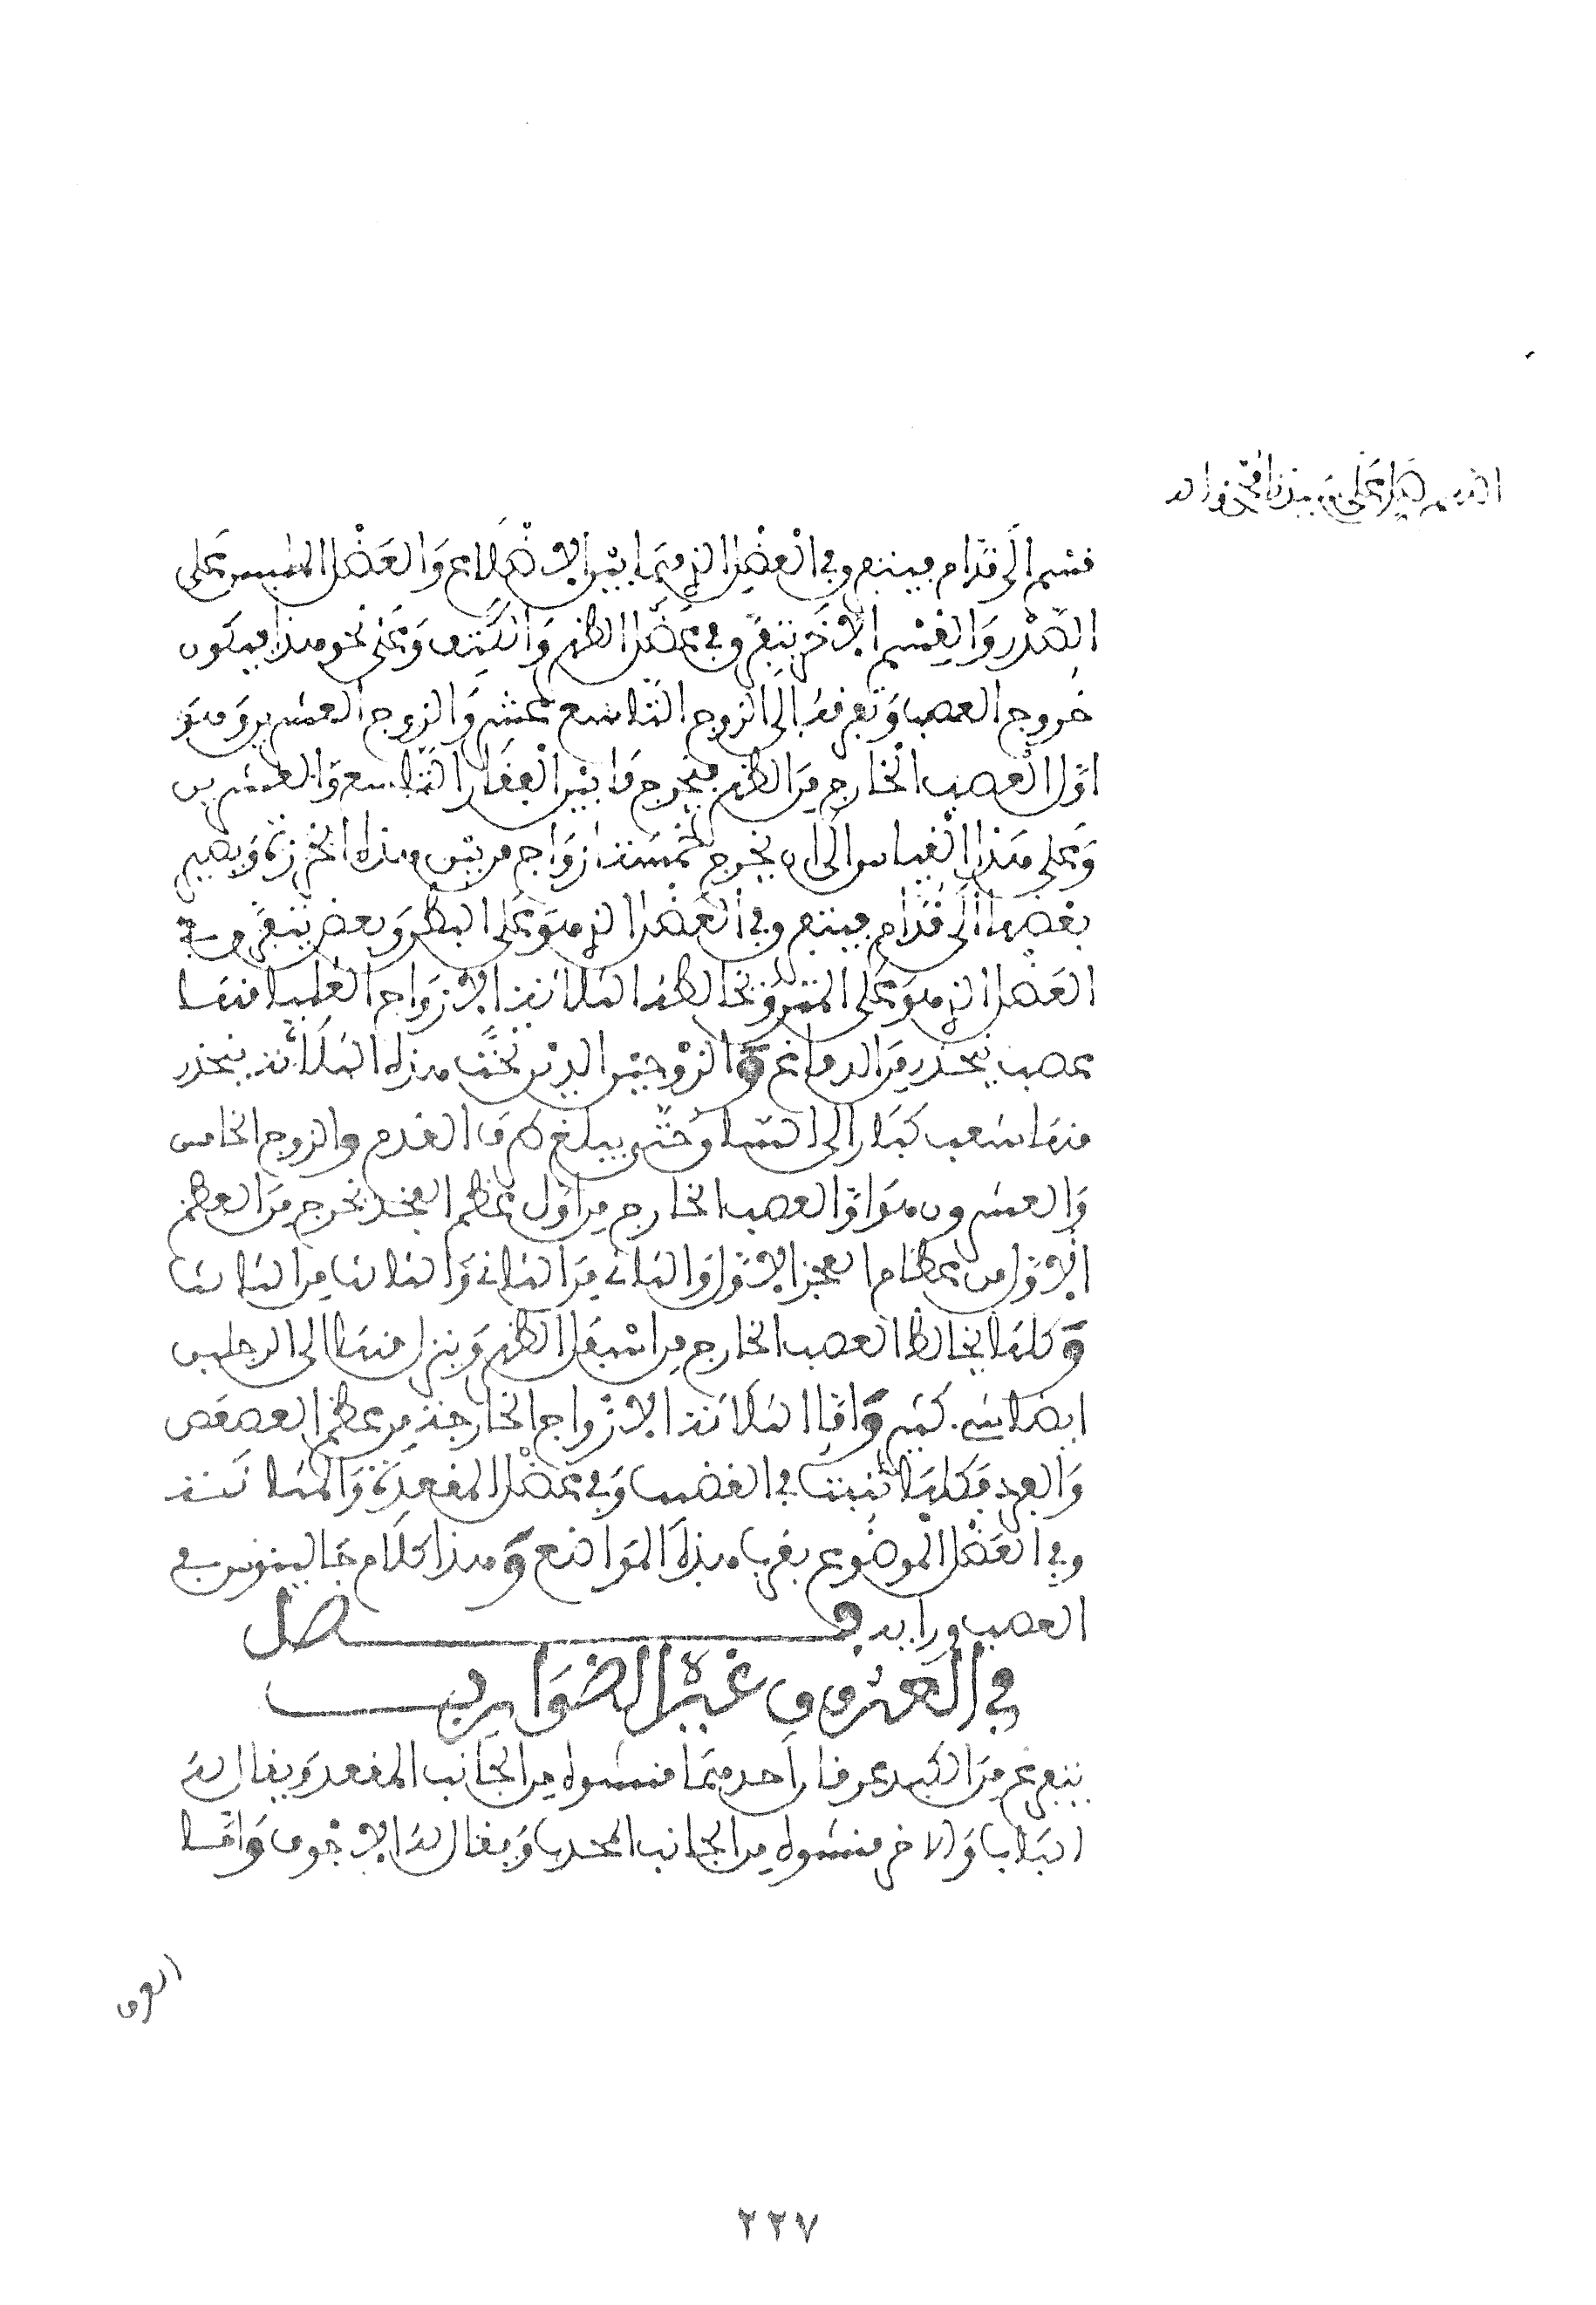 اللهم صل على سيدنا محمد وآله
قسم الى قدّام فينبع وفي العضل الذي فيما بين الاضلاع والعضل الملبس على
الصدر والقسم الاخر يتفرق في عضل الظهر والكتف وعلى نحو هذا فيكون
خروج العصب وتفرقه الى الزوج التاسع عشر والزوج العشرين وهو
اول العصب الخارج من الظهر فيخرج ما بين الفقار التاسع والعشرين
وعلى هذا القياس الى ان يخرج خمسة ازواج من بين هذه الخرزة ويصير
بعضها الى قدام فينبع وفي العضل الذي هو على البطن وبعض يتفرق في
العضل الذي هو على المتن وتخالط هذه الثلاثة الازواج العليا منها
عصب ينحدر من الدماغ والزوجين الذين تحت هذه الثلاثة ينحدر
منها شعب كبار الى الساق حتى يبلغ طرف القدم والزوج الخامس
والعشرون هو اول العصب الخارج من اول عظم العجز تخرج من العظم
الاول من عظام العجز الاول والثاني من الثاني والثالث من الثالث
وكلها تخالط العصب الخارج من اسفل الظهر وينزل منها الى الرجلين
ايضا شيء كثير واما الثلاثة الازواج الخارجة من عظم العصعص
والفرد فكلها تنبث في القضيب وفي عضل المقعدة والمثانة
وفي العضل الموضوع بقرب هذه المواضع وهذا كلام جالينوس في
العصب ورأيه فصل
في العروق غير الضوارب
ينبع من الكبد عرقان احدهما منشؤه من الجانب المقعر ويقال له
الباب والاخر منشؤه من الجانب المحدب ويقال له الاجوف واما
العرق
٢٢٧